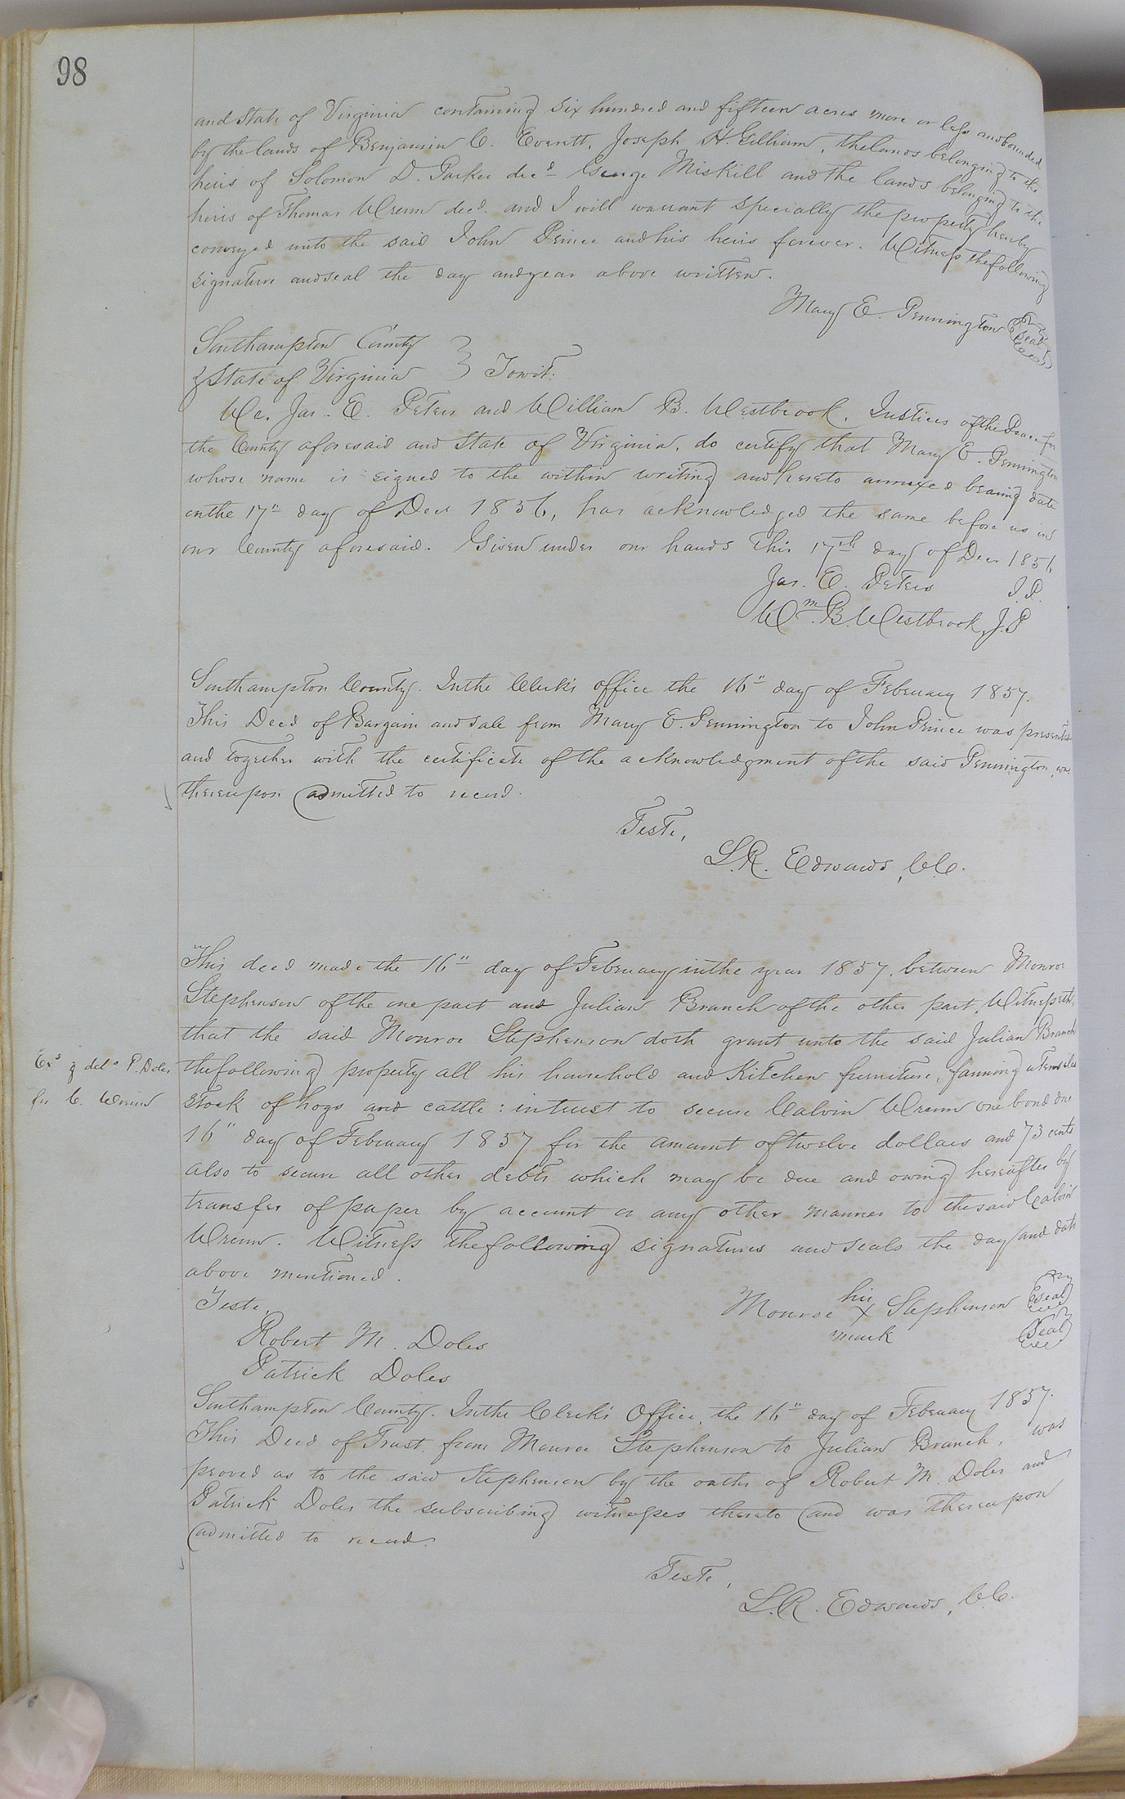 98
and State of Virginia containing six hundred and fifteen acres more or less and bounded
by the lands of Benjamin C. Everett, Joseph H. Gilliam, the lands belonging to the
heirs of Solomon D. Parker decd George Miskill and the lands belonging to the
heirs of Thomas Wrenn decd. and I will warrant specially the property hereby
conveyed unto the said John Prince and his heirs forever. Witness the following
signature and seal the day and year above written.
Mary E. Pennington (Seal)
Southampton County
& State of Virginia } Towit:
We, Jas. E. Peters and William B. Westbrook, Justices of the Peace for
the County aforesaid and State of Virginia, do certify that Mary E. Pennington
whose name is signed to the within writing and hereto annexed bearing date
on the 17" day of Decr 1856, has acknowledged the same before us in
our County aforesaid. Given under our hands this 17th day of Decr 1856
Jas. E. Peters J.P.
Wm. B. Westbrook, J.P
Southampton County. In the Clerk's office the 16" day of February 1857.
This Deed of Bargain and sale from Mary E. Pennington to John Prince was presented
and together with the certificate of the acknowledgment of the said Pennington, was
thereupon admitted to record.
Teste,
L.R. Edwards, C.C.
This deed made the 16" day of February in the year 1857, between Monroe
Stephenson of the one part and Julian Branch of the other part, Witnesseth,
that the said Monroe Stephenson doth grant unto the said Julian Branch
Exd & deld P. Doles
for C. Wrenn
the following property all his household and Kitchen furniture, farming utensils
Stock of hogs and cattle: in trust to secure Calvin Wrenn one bond due
16" day of February 1857 for the amount of twelve dollars and 73 cents
also to secure all other debts which may be due and owing hereafter by
transfer of paper by account or any other manner to the said Calvin
Wrenn. Witness the following signatures and seals the day and date
above mentioned.
Teste, Monroe his x mark Stephenson (Seal)
Robert M. Doles (Seal)
Patrick Doles
Southampton County. In the Clerk's Office, the 16" day of February 1857.
This Deed of Trust from Monroe Stephenson to Julian Branch, was
proved as to the said Stephenson by the oaths of Robert M. Doles and
Patrick Doles the subscribing witnesses thereto and was thereupon
admitted to record.
Teste,
L.R. Edwards, C.C.